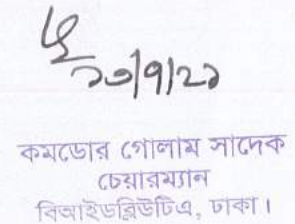 ১৩/৭/২১
কমডোর গোলাম সাদেক
চেয়ারম্যান
বিআইডব্লিউটিএ, ঢাকা।